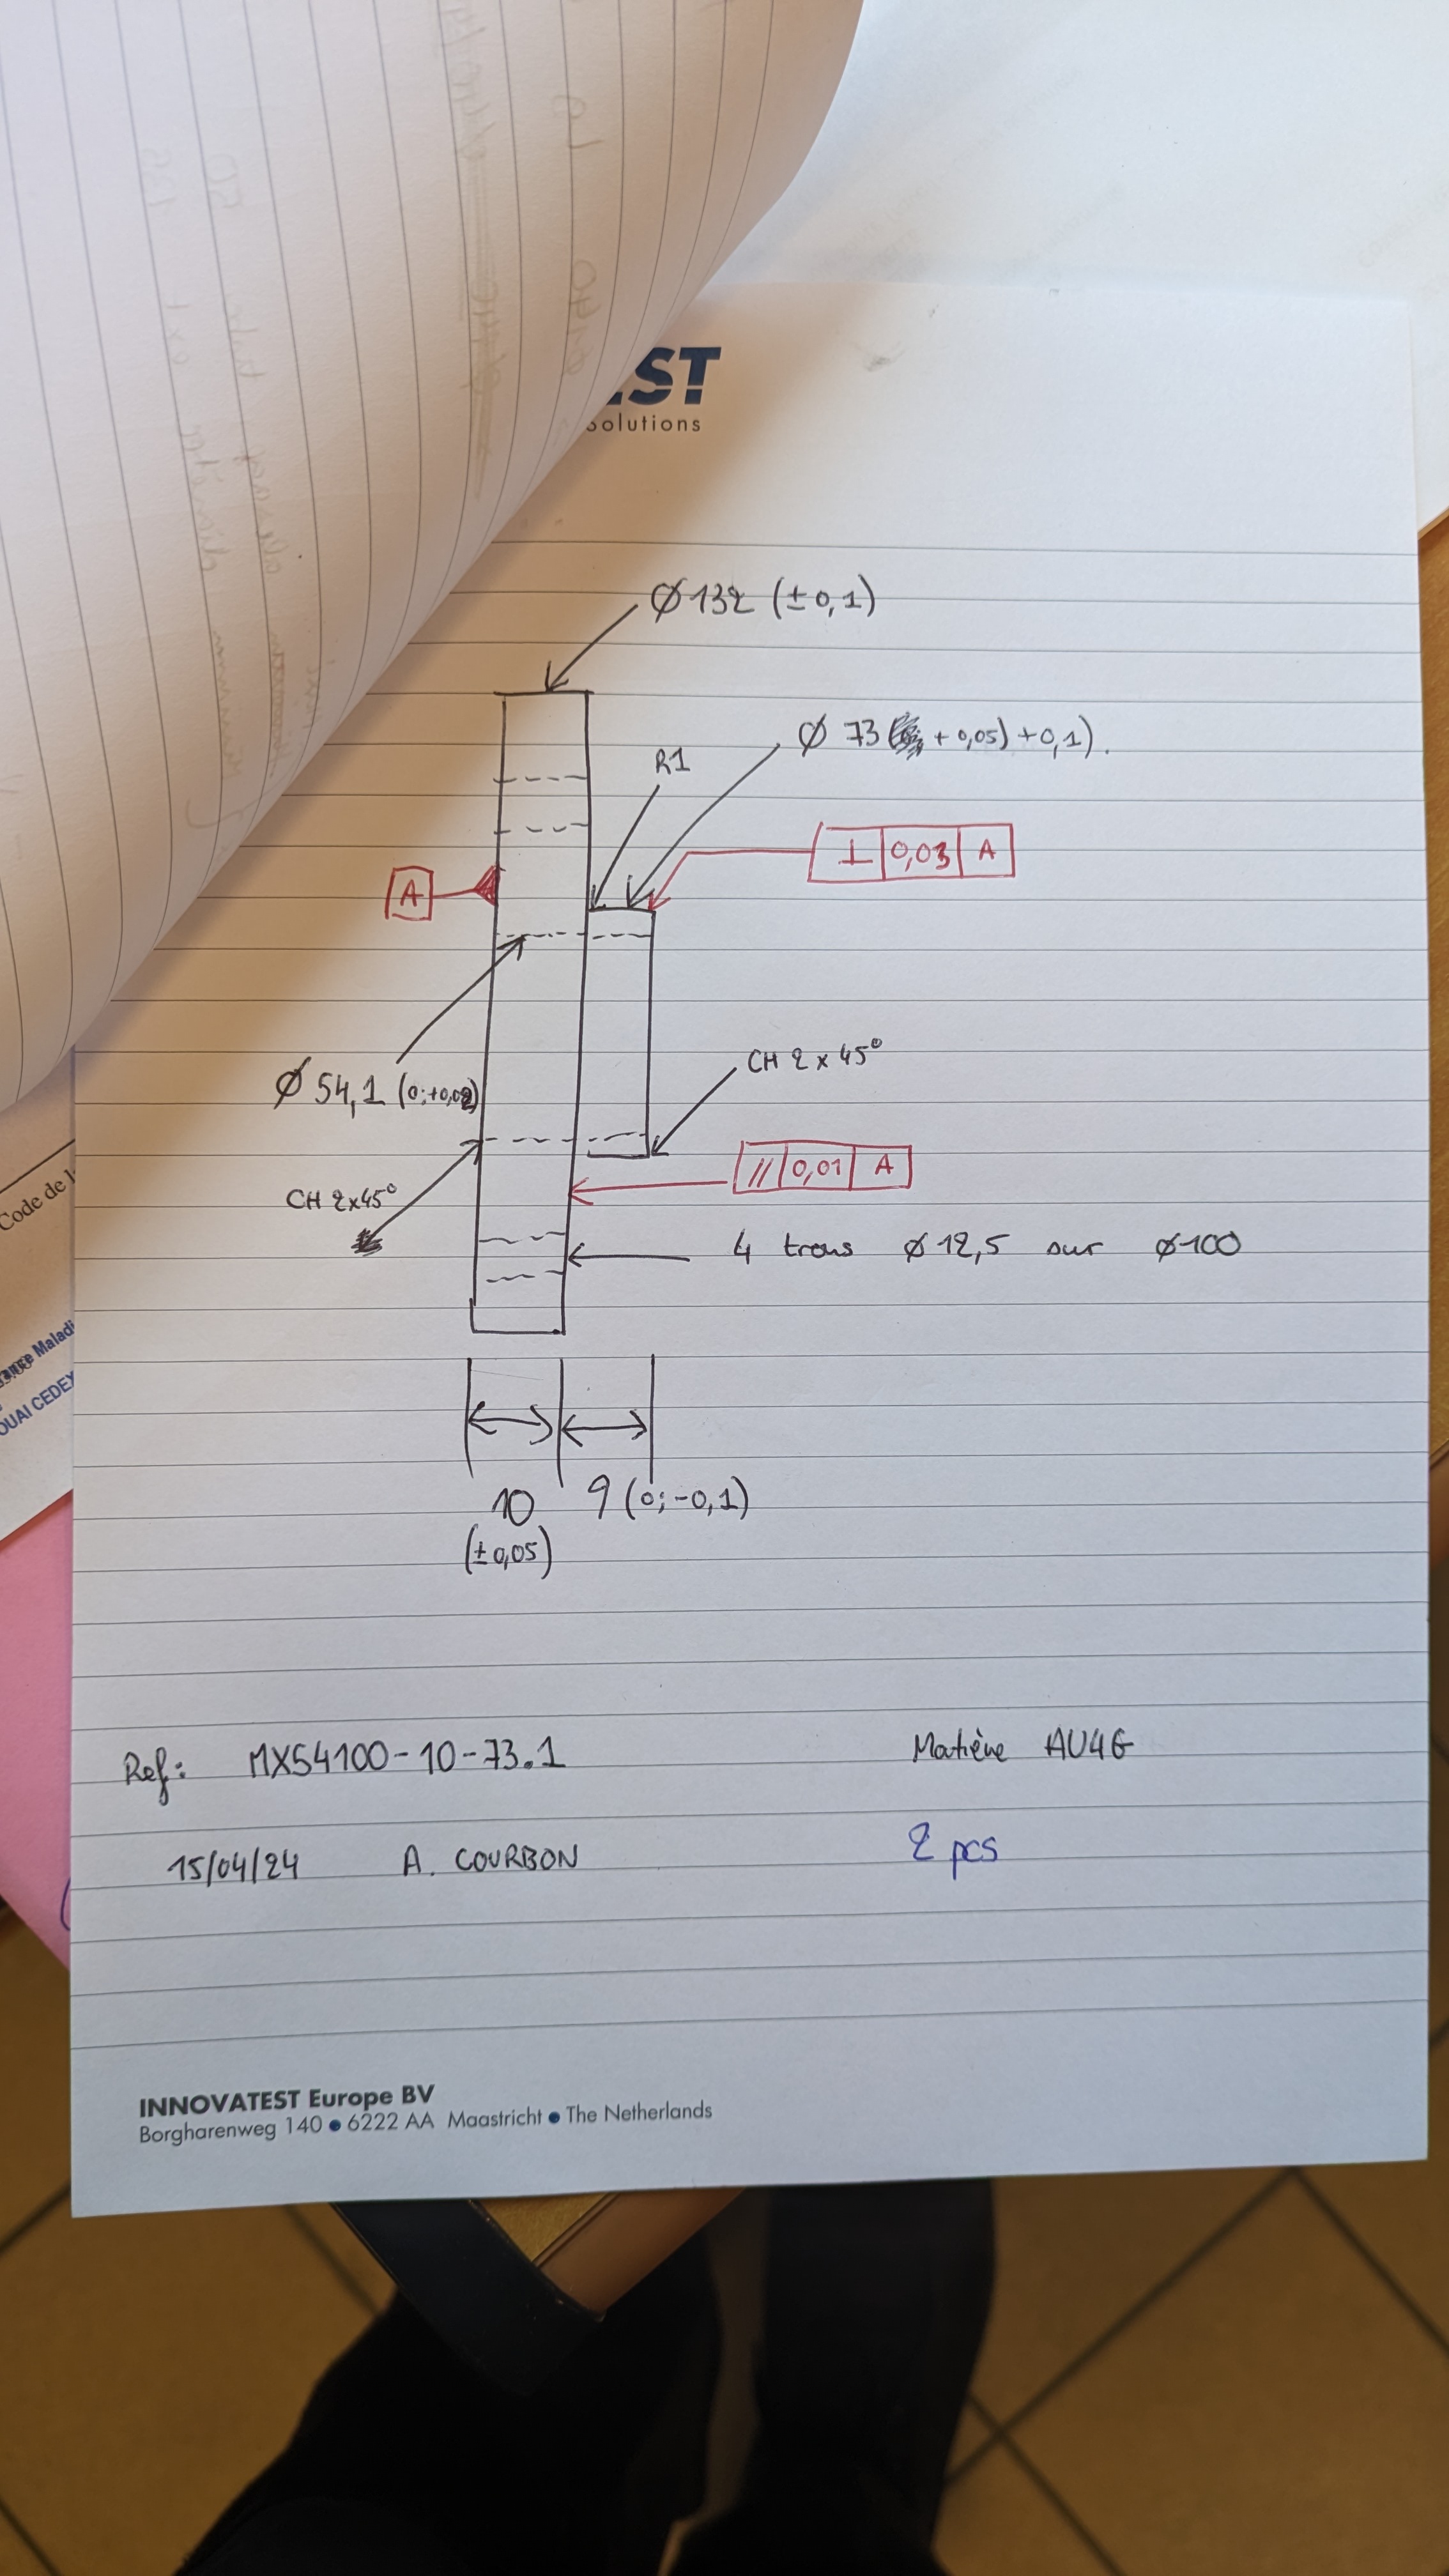 EST
Solutions
Ø 132 (± 0,1)
Ø 73 ( + 0,05) + 0,1).
R1
⊥ 0,03 A
A
Ø 54,1 (0;+0,02)
CH 2 x 45°
CH 2x45°
// 0,01 A
4 trous Ø 12,5 sur Ø100
10 9 (0; -0,1)
(± 0,05)
Ref: MX54100-10-73.1 Matière AU4G
15/04/24 A. COURBON 2 pcs
INNOVATEST Europe BV
Borgharenweg 140 • 6222 AA Maastricht • The Netherlands
Code de l
Maladi
OUAI CEDEX